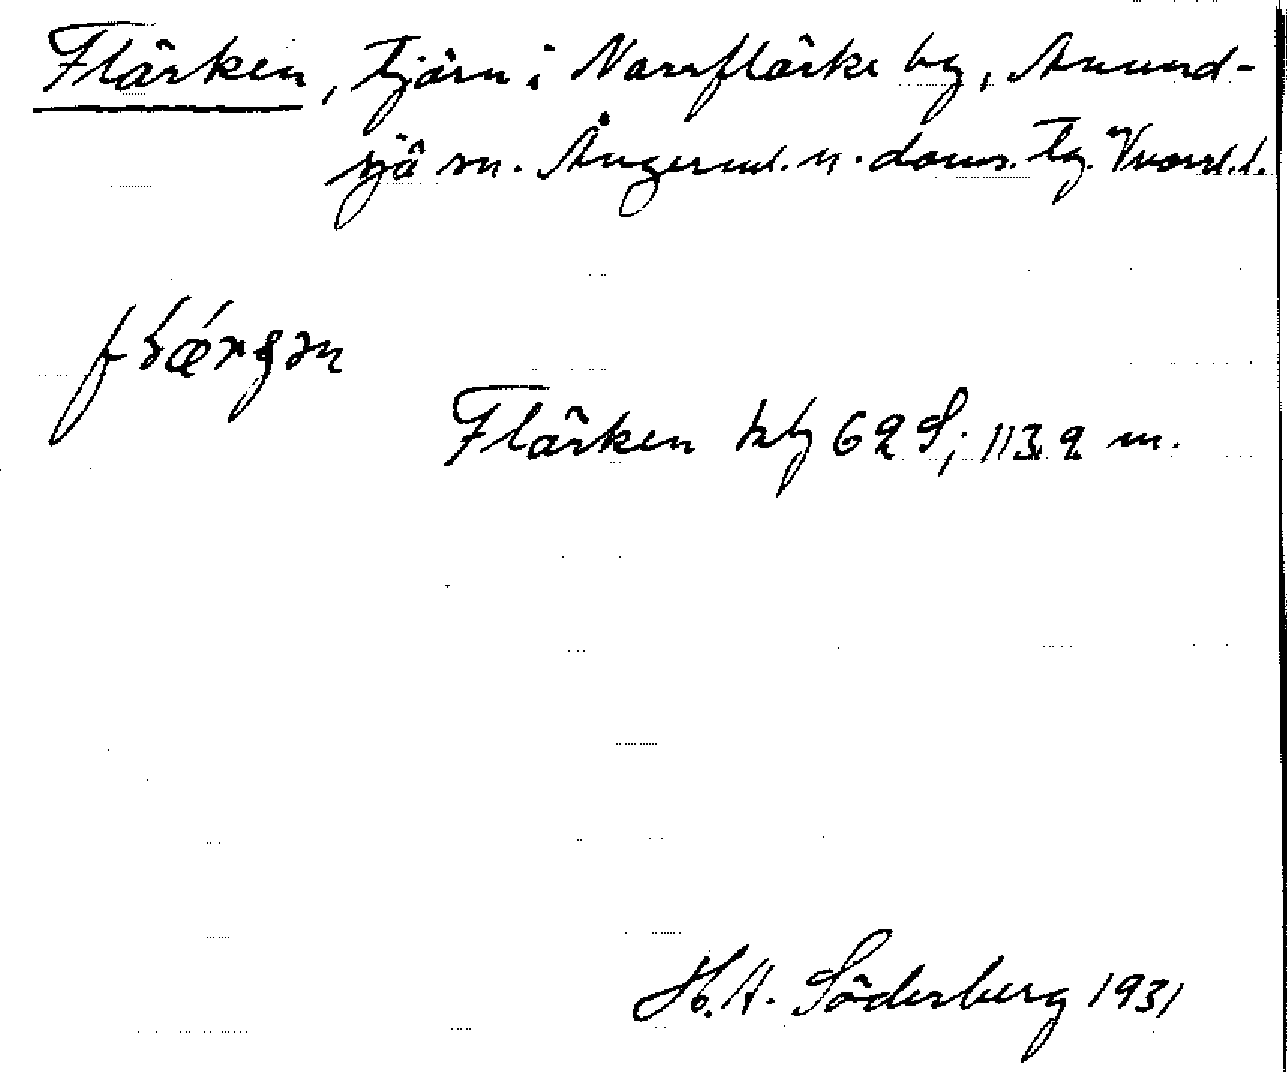 Flärken, tjärn i Norrflärke by, Anund-
sjö sn. Ångerml. n. doms. tg. Vnorrl. l.
Flärken kbl 62 S; 113,2 m.
H. A. Söderberg 1931